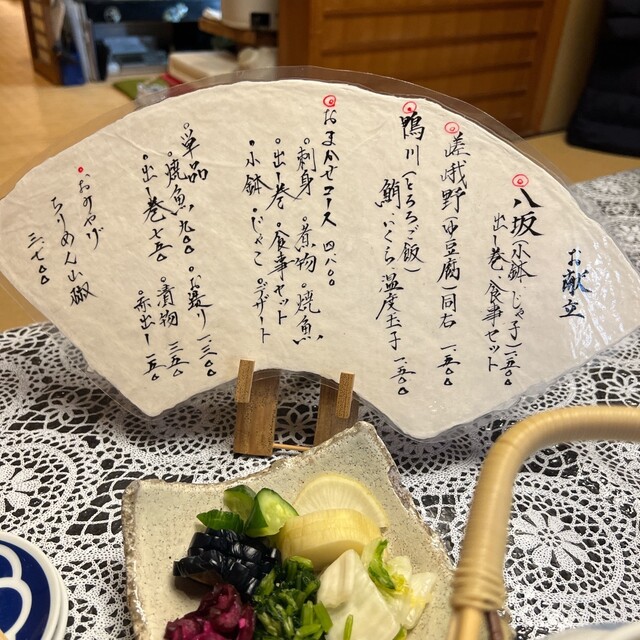 お献立
八坂(小鉢・じゃこ)一五〇〇
出し巻、食事セット
嵯峨野(ゆ豆腐)同右 一五〇〇
鴨川(とろろご飯)
鯛、いくら、温度玉子 一五〇〇
おまかせコース 四八〇〇
・刺身 ・煮物 ・焼魚
・出し巻 ・食事セット
・小鉢 ・じゃこ ・デザート
単品
・焼魚 九〇〇 ・お造り 一三〇〇
・出し巻 七五〇 ・漬物 三五〇
・赤出し 一五〇
・おみやげ
ちりめん山椒
三、七〇〇